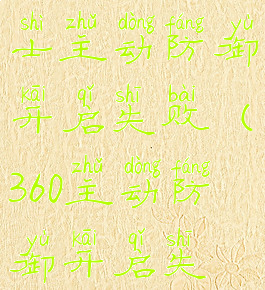 shì zhǔ dòng fáng yù
士主动防御
kāi qǐ shī bài
开启失败（
zhǔ dòng fáng
360主动防
yù kāi qǐ shī
御开启失